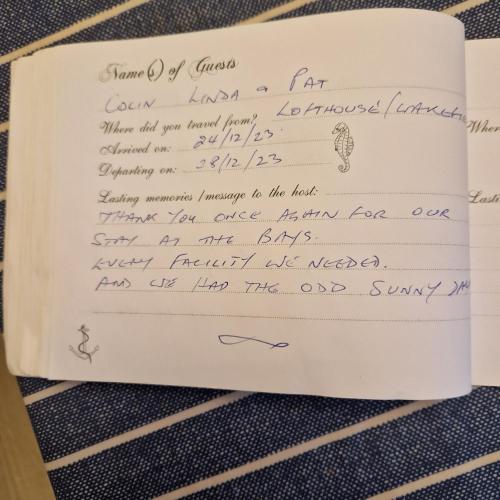 Name(s) of Guests
COLIN LINDA & PAT
Where did you travel from? LOFTHOUSE/WAKEFIE
Arrived on: 24/12/23
Departing on: 28/12/23
Lasting memories / message to the host:
THANK YOU ONCE AGAIN FOR OUR
STAY AT THE BAYS.
EVERY FACILITY WE NEEDED.
AND WE HAD THE ODD SUNNY DAY
Where
Lasti